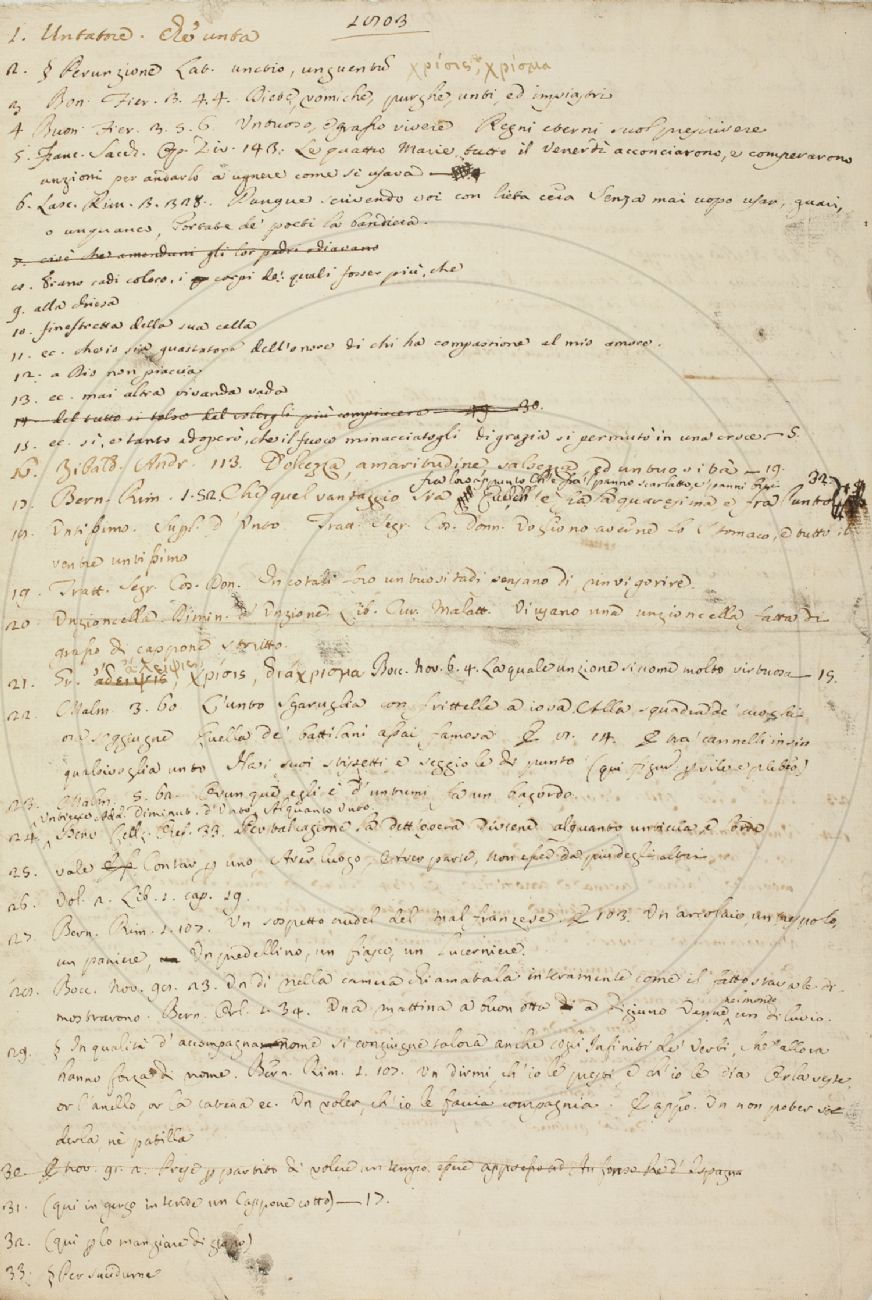 1703
1. Untatore. Ché unta
2. § Perunzione Lat. unctio, unguentũ χρίσις, χρίσμα
3 Bon. Fier. 3. 4. 4. Diete, vomiche, purghe, unti, ed impiastri
4 Buon. Fier. 3. 5. 6 Untuoso, e grasso vivere Regni eterni suol prescrivere
5. Franc. Sacch. Op. Div. 143. Le quattro Marie tutto il Venerdì acconciarono, e comperarono
unzioni per andarlo a ugnere come si usava
6. Lasc. Rim. 3. 328. Dunque scrivendo voi con lieta cera Senza mai uopo usar, quari,
o unquanco, Portate de' poeti la bandiera.
7. cioè che amenduni gli lor padri odiavano
8. Siano cadi coloro, i corpi de' quali fosser più, che
9. alla chiesa
10. finestretta della sua cella
11. ec. ch'io sia guastatore dell'onore di chi ha compassione al mio amore.
12. a Dio non piaccia
13. ec. mai altra vivanda vada
14. del tutto si tolse dal coiergli più compiacere 30.
15. ec. sì, e tanto adoperò, che il fuoco minacciatogli di grazia si permutò in una croce — 5.
16. Zibald. Andr. 113. Dolcezza, amaritudine, salsezza, ed untuosità — 19.
fra loro appunto Ch'è fra 'l panno scarlatto, e i panni
17. Bern. Rim. 1. 52. Che quel vantaggio sia Ch'è fra la quaresima e fra l'unto 32.
18. Untissimo. Superl. d'Unto. Tratt. Segr. Cos. Donn. Vogliono averne lo stomaco, e tutto il
ventre untissimo
19. Tratt. Segr. Cos. Don. In cotali loro untuositadi sensano di invigorire.
20. Unzioncella. Dimin. d'Unzione. Lib. Cur. Malatt. Vi usano una unzioncella fatta di
grasso di cappone strutto.
21. Gr. ἄλειψις, χρίσις, διάχρισμα Bocc. Nov. 6. 4. La quale unzione sì come molto virtuosa — 15.
22. Malm. 3. 60 L'unto Sgaruglia con frittelle a iosa Alla squadra de' cuochi
or soggiugne Quella de' battilani assai famosa 14. cannelli insin
qualsivoglia unto Hai suoi stipetti e seggiole di punto (qui vile e plebeo)
23. Malm. 5. 62. Dunque, egli è d'untumi, fa un bagordo.
Unticcio Add. Diminut. d'Unto, Alquanto Unto.
24. Benv. Cell. Oref. 33. Per tal cagione la dett'opera diviene alquanto unticcia, e lorda
25. vale Contar uno Aver luogo, Esser parte, Non esser da più degli altri
26. Vol. 2. Lib. 1. cap. 19.
27. Bern. Rim. 1. 107. Un sospetto crudel del mal franzese. 103. Un arcolaio, un nespolo,
un paniere, Un predellino, un fiasco, un lucerniere.
28. Bocc. Nov. 98. 23. Un dì nella camera chiamatala interamente come il fatto stava le di-
nel mondo
mostrarono. Bern. Orl. 1. 34. Una mattina a buon otta a digiuno Venne un diluvio.
29. § In qualità d'accompagnanome si congiugne talora anche cogli Infiniti de' Verbi, che allora
hanno forza di nome. Bern. Rim. 1. 107. Un dirmi, ch'io le presti, e ch'io le dia Or la veste,
or l'anello, or la catena ec. Un voler, ch'io le faccia compagnia. appo. Un non poter ve-
derla, nè patilla
30. nov. 98. 2. Prese partito di volere un tempo re d'Ispagna
31. (qui in gergo intende un Cappone cotto) — 17.
32. (qui lo mangiare di grasso)
33. § Per sucidume